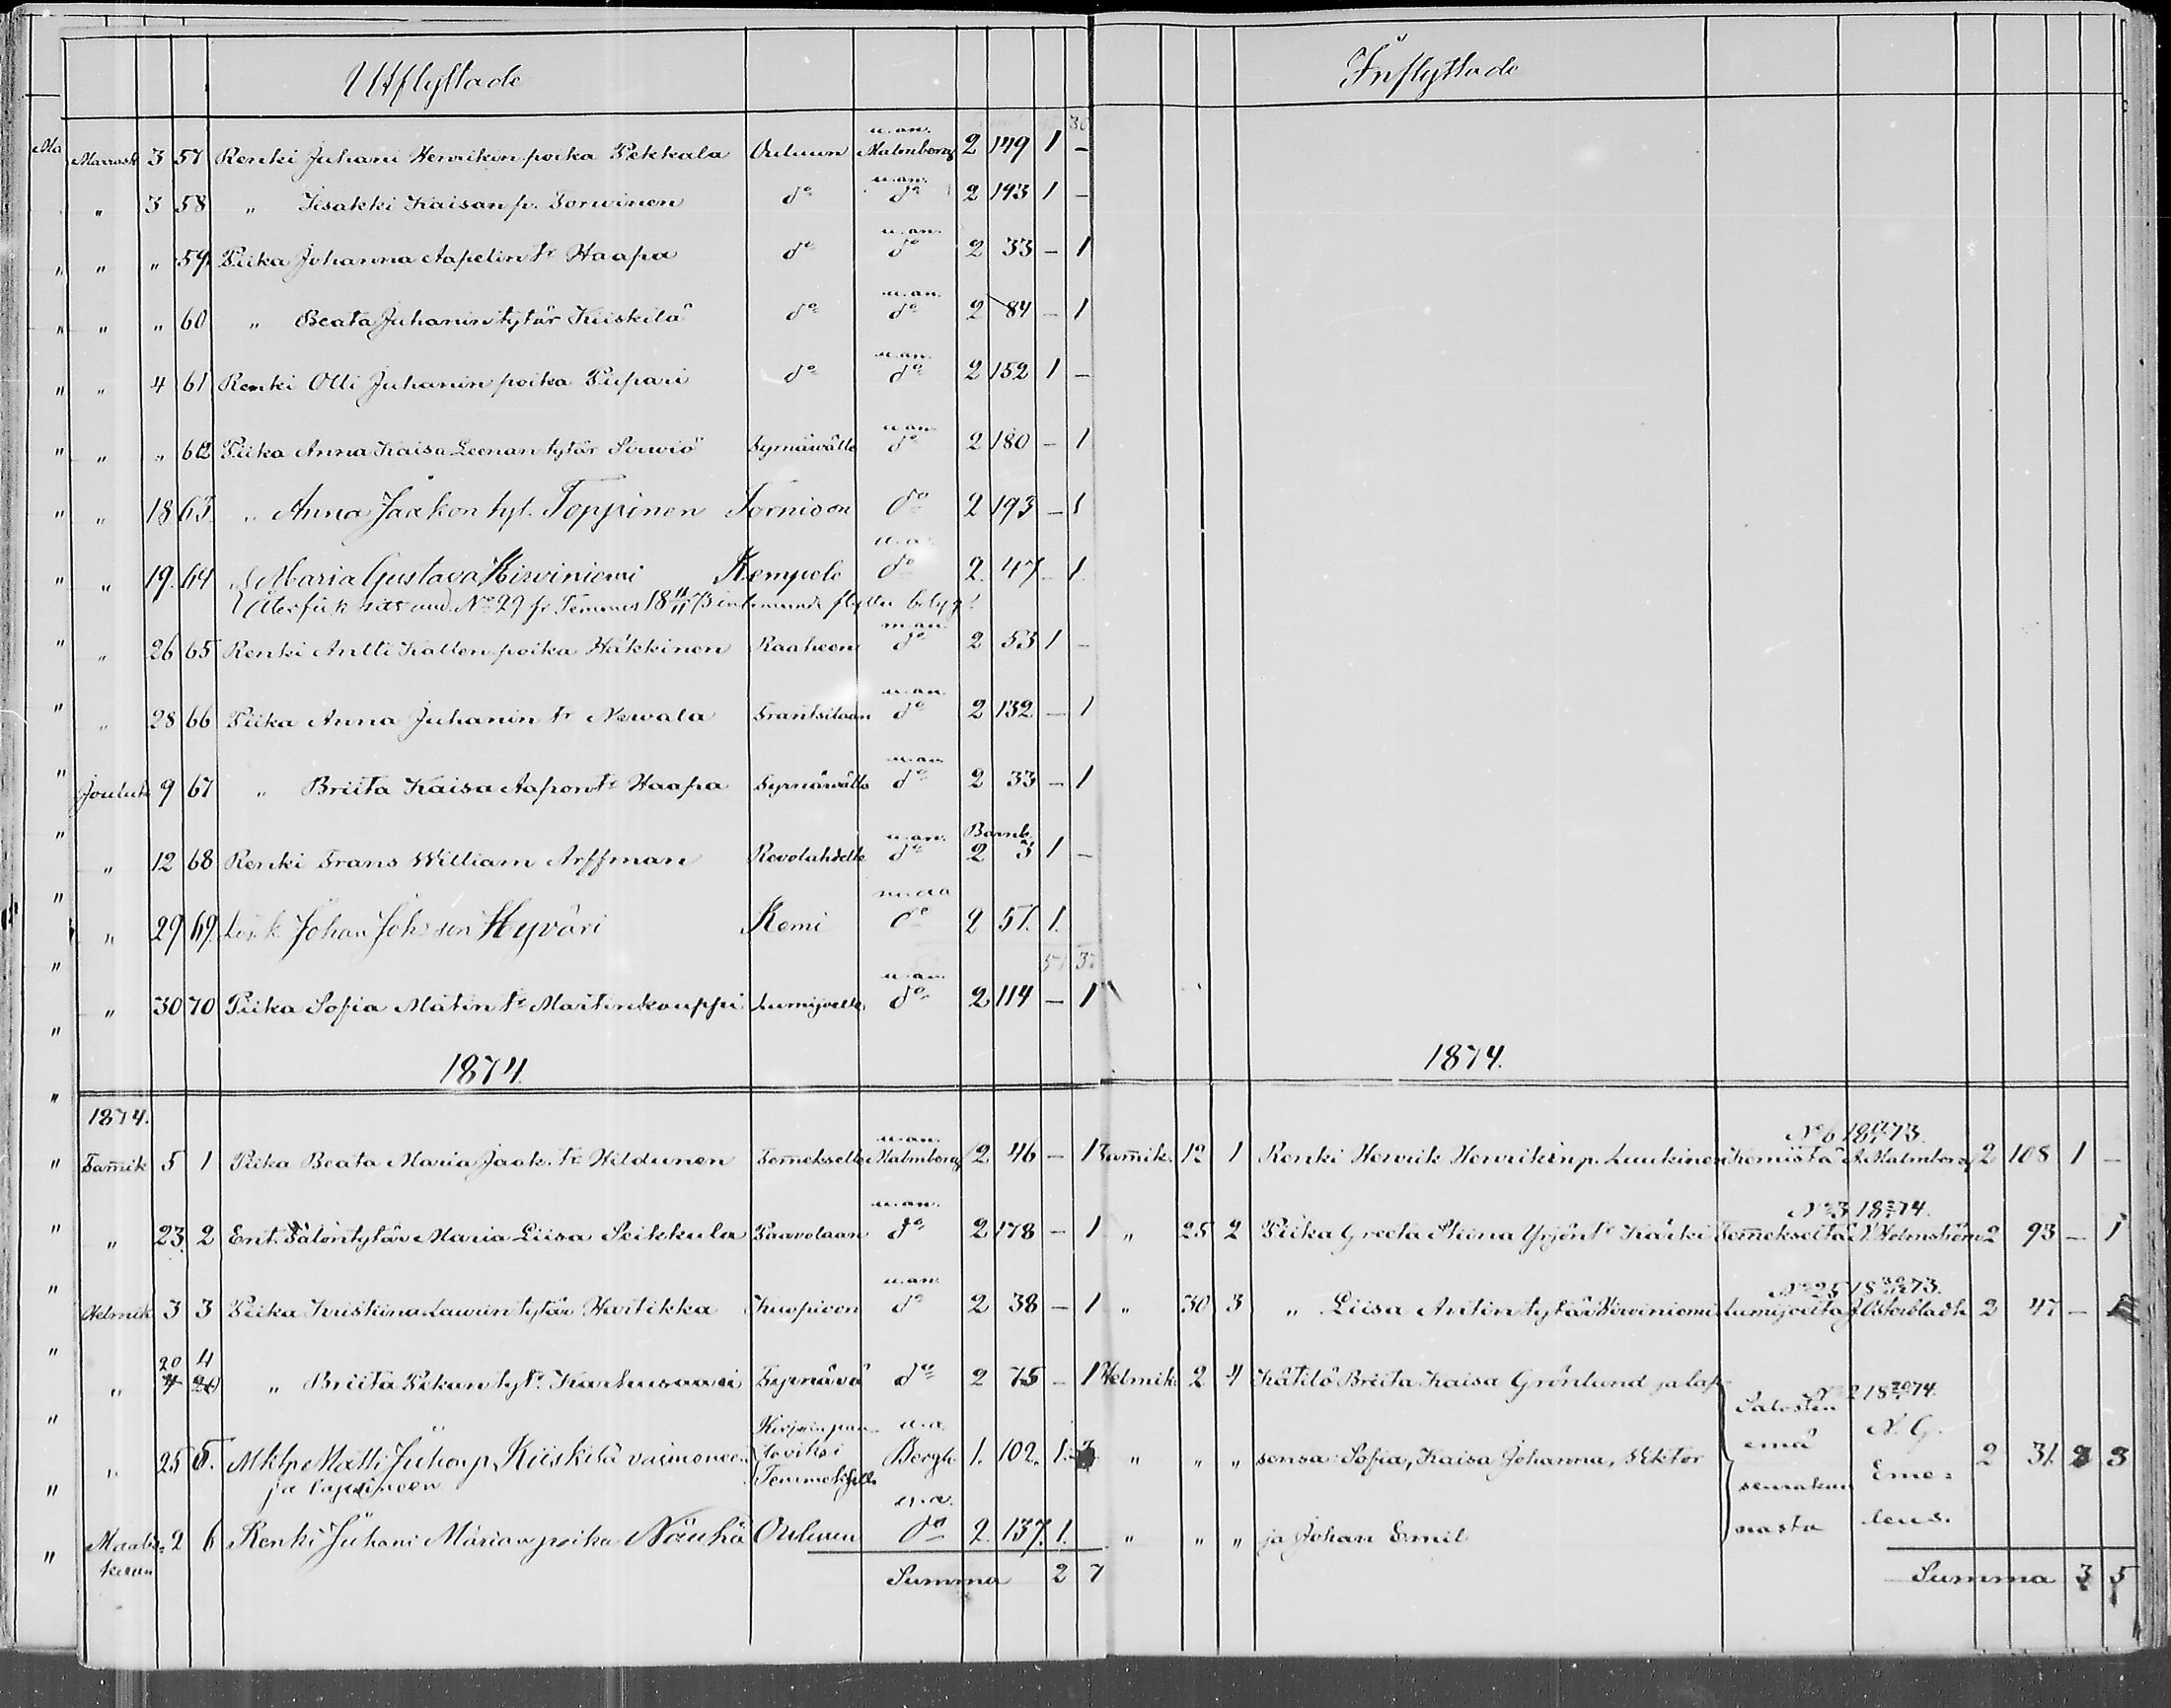 Utflyttade
Marrask 3 57 Renki Juhani Henrikin poika Pekkala Ouluun u. an. Malmberg 2 149 1 -
" 3 58 " Iisakki Kaisan p. Torvinen do u. an. do 2 193 1 -
" " 59 Piika Johanna Aapelin tr Haapa do u. an. do 2 33 - 1
" " 60 " Beata Juhanin tytär Kiiskilä do u. an. do 2 84 - 1
" 4 61 Renki Olli Juhanin poika Piipari do u. an. do 2 152 1 -
" " 62 Piika Anna Kaisa Leenan tytär Tyrnävälle u. an. do 2 180 - 1
" 18 63. " Anna Jaakon tyt. Toppinen Tornioon do 2 193 - 1
" 19. 64 " Maria Gustava Hirviniemi Kempele u. a. do 2. 47 - 1.
No 29 fr Temmes 18 73
" 26 65 Renki Antti Kallen poika Häkkinen Raaheen m. an. do 2 53 1 -
" 28 66 Piika Anna Juhanin tr Nevala Frantsilaan u. an. do 2 132 - 1
Jouluk 9 67 " Briita Kaisa Aapon tr Haapa Tyrnävälle u. an. do 2 33 - 1
" 12 68 Renki Frans William Arffman Revolahdelle u. an. do Barnb. 2 3 1 -
" 29 69. Lösk. Johan Johsson Hyväri Kemi do 2 57. 1.
" 30 70 Piika Sofia Matin tr Martinkauppi Lumijoelle u. an. do 2 114 - 1
1874.
1874.
Tam̄ik 5 1 Piika Beata Maria Jaak. tr Hildunen Tem̄ekselle u. an. Malmberg 2 46 - 1
" 23. 2 Ent. Talontytär Maria Liisa Seikkula Paavolaan u. an. do 2 178 - 1
Helmik 3 3 Piika Kristiina Laurin tytär Hartikka Kuopioon u. an. do 2 38 - 1
" 20 4 " Briita Pekan tytr Karhusaari Tyrnävä do 2 75 - 1
" 25 5. Mktp Matti Juhon p. Kiiskilä vaimoneen ja lapsineen Temmekselle u. a. Bergh 1. 102. 1.
Maalis-kuun 2 6 Renki Juhani Marian poika Näuhä Ouluun u. a. do 2. 137. 1.
Summa 2 7
Inflyttade
1874.
Tam̄ik. 12 1 Renki Henrik Henrikin p. Luukinen Kemistä No 6 18 73. A. Malmberg 2 108 1 -
" 25 2 Piika Greeta Stiina Yrjön tr Kärki Tem̄ekseltä No 3 18 74. N. Holmström 2 93 - 1
" 30 3 " Liisa Antin tytär Hirviniemi Lumijoelta No 25 18 73. 2 47 -
Helmik 2 4 Kätilö Briita Kaisa Grönlund ja lap-
" " " sensa: Sofia, Kaisa Johanna, Wiktor 2 31. 3
" " " ja Johan Emil
Saloisten emä seurakun nasta No 2 18 74. N. G. Eme= leus.
Summa 3 5